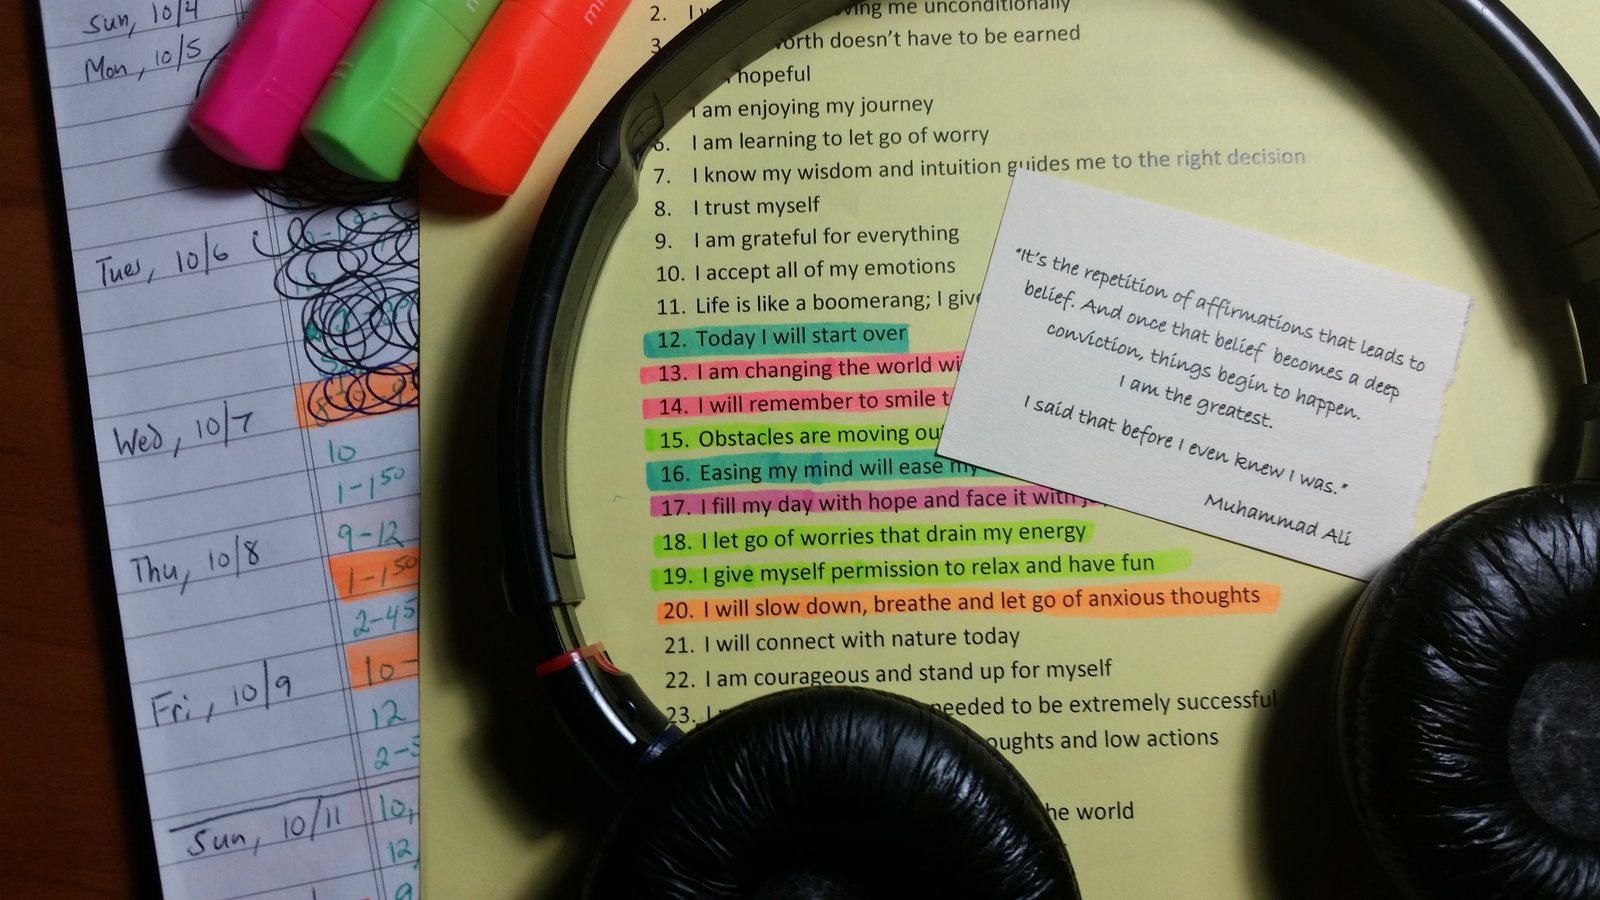 Sun, 10/4
Mon, 10/5
Tues, 10/6
Wed, 10/7
10
1-150
9-12
Thu, 10/8
1-150
2-45
Fri, 10/9
10-
12
2-
Sun, 10/11
10,
12,
9
2. I me unconditionally
3. worth doesn't have to be earned
hopeful
I am enjoying my journey
6. I am learning to let go of worry
7. I know my wisdom and intuition guides me to the right decision
8. I trust myself
9. I am grateful for everything
10. I accept all of my emotions
11. Life is like a boomerang; I give
12. Today I will start over
13. I am changing the world
14. I will remember to smile
15. Obstacles are moving out
16. Easing my mind will ease my
17. I fill my day with hope and face it with
18. I let go of worries that drain my energy
19. I give myself permission to relax and have fun
20. I will slow down, breathe and let go of anxious thoughts
21. I will connect with nature today
22. I am courageous and stand up for myself
23. I needed to be extremely successful
and low actions
world
"It's the repetition of affirmations that leads to
belief. And once that belief becomes a deep
conviction, things begin to happen.
I am the greatest.
I said that before I even knew I was."
Muhammad Ali